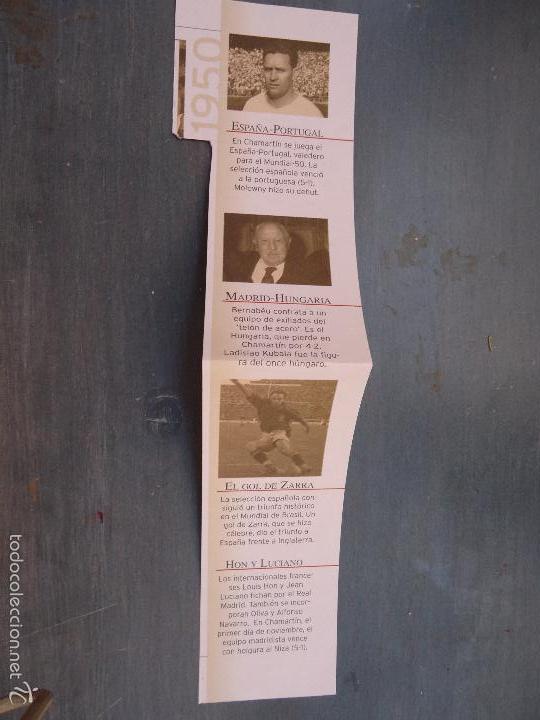 1950
ESPAÑA-PORTUGAL
En Chamartín se juega el
España-Portugal, valedero
para el Mundial-50. La
selección española venció
a la portuguesa (5-1).
Molowny hizo su debut.
MADRID-HUNGARIA
Bernabéu contrata a un
equipo de exiliados del
'telón de acero'. Es el
Hungaria, que pierde en
Chamartín por 4-2.
Ladislao Kubala fue la figu-
ra del once húngaro.
EL GOL DE ZARRA
La selección española con-
siguió un triunfo histórico
en el Mundial de Brasil. Un
gol de Zarra, que se hizo
célebre, dio el triunfo a
España frente a Inglaterra.
HON Y LUCIANO
Los internacionales france-
ses Louis Hon y Jean
Luciano fichan por el Real
Madrid. También se incor-
poran Oliva y Alfonso
Navarro. En Chamartín, el
primer día de noviembre, el
equipo madridista vence
con holgura al Niza (5-1).
todocoleccion.net